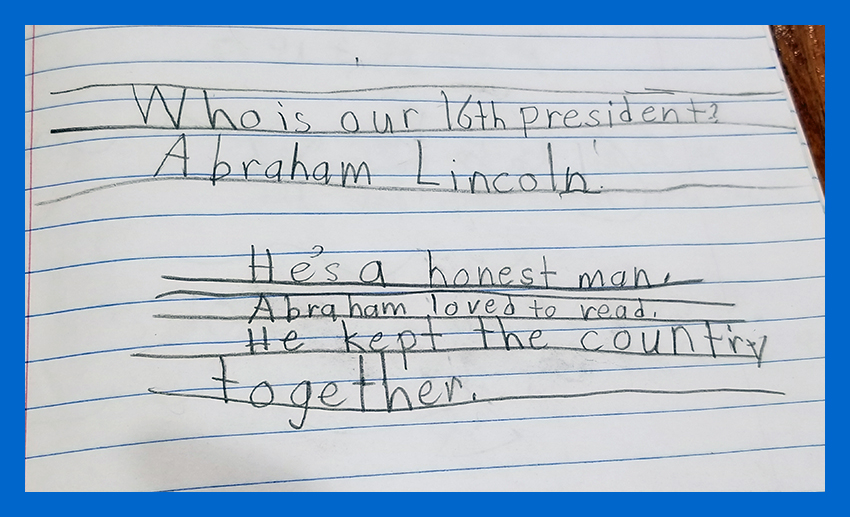 Who is our 16th president?
Abraham Lincoln.
He's a honest man.
Abraham loved to read.
He kept the country
together.